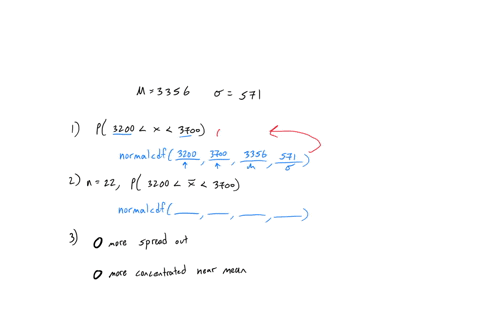 μ = 3356 σ = 571
1) P( 3200 < x < 3700) (
normalcdf( 3200 , 3700 , 3356 , 571 )
↑ ↑ μ σ
2) n = 22, P( 3200 < x̄ < 3700)
normalcdf( ___ , ___ , ___ , ___ )
3) O more spread out
O more concentrated near mean